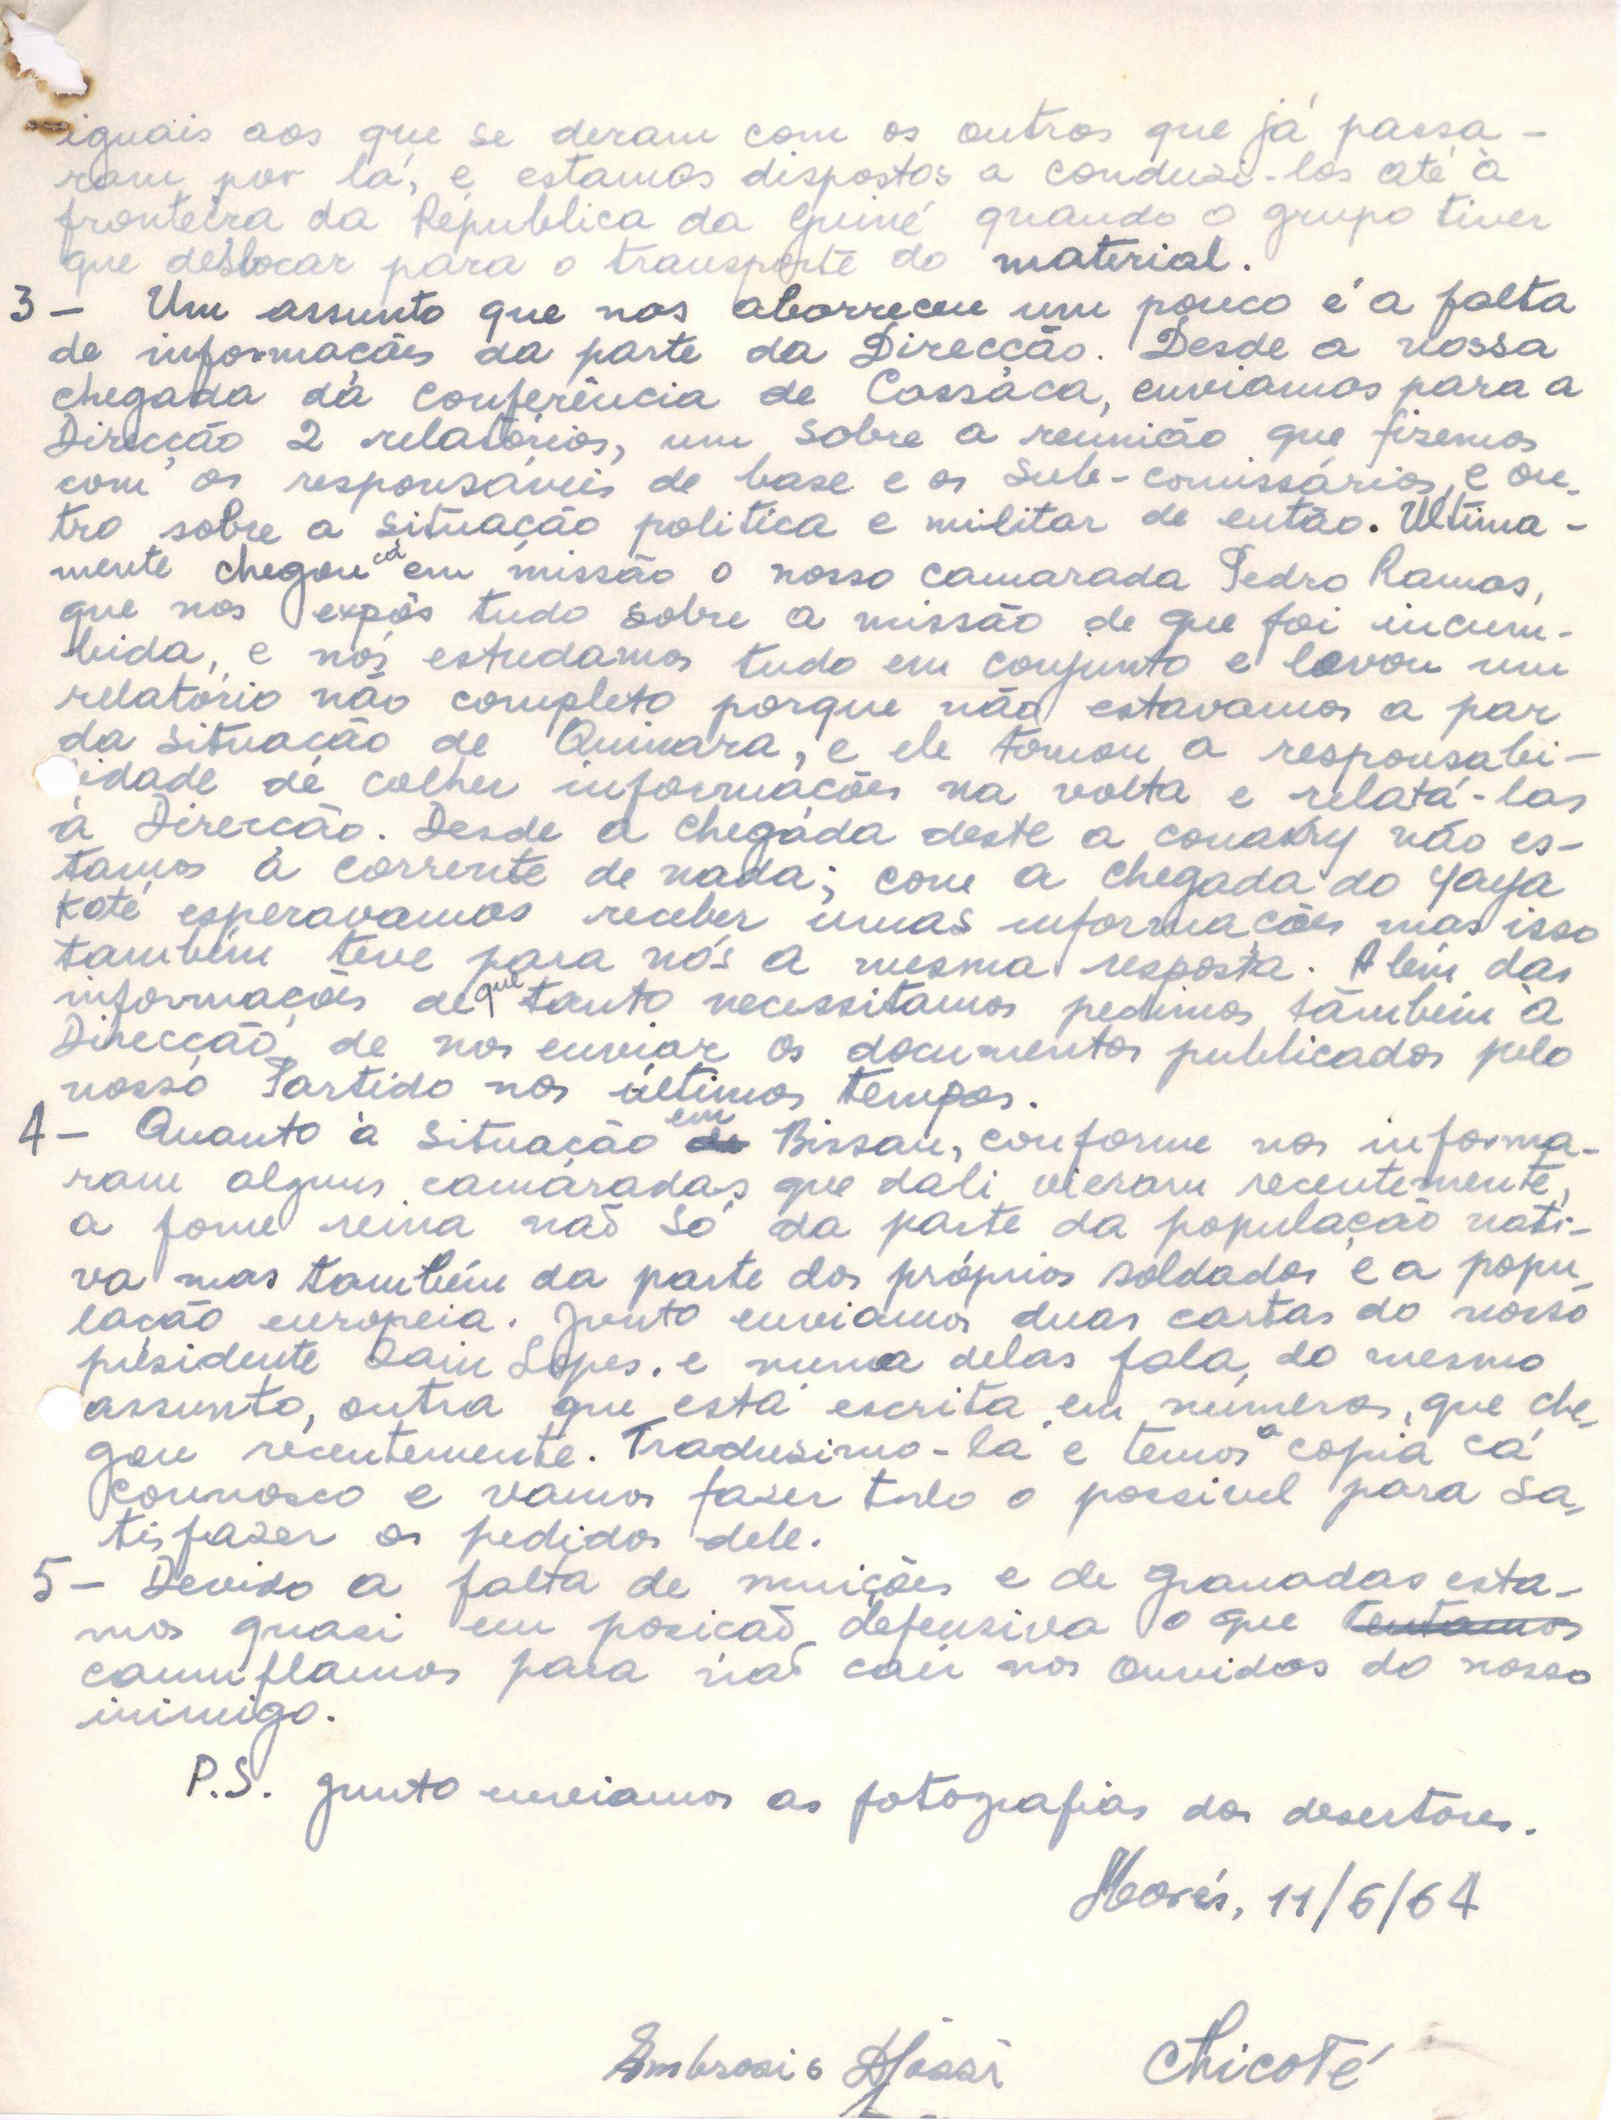 iguais aos que se deram com os outros que já passa-
ram por lá, e estamos dispostos a conduzi-los até à
fronteira da Républica da Guiné quando o grupo tiver
que deslocar para o transporte do material.
3- Um assunto que nos aborreceu um pouco é a falta
de informações da parte da Direcção. Desde a nossa
chegada da Conferência de Cassaca, enviamos para a
Direcção 2 relatórios, um sobre a reunião que fizemos
com os responsáveis de base e os sub-comissários, e ou-
tro sobre a situação politica e militar de então. Ultima-
mente chegou cá em missão o nosso camarada Pedro Ramos,
que nos expôs tudo sobre a missão de que foi incum-
bida, e nós estudamos tudo em conjunto e levou um
relatório não completo porque não estavamos a par
da situação de Quinara, e ele tomou a responsabi-
lidade de colher informações na volta e relatá-las
à Direcção. Desde a chegada deste a conakry não es-
tamos à corrente de nada; com a chegada do Yaya
Koté esperavamos receber umas informações mas isso
também teve para nós a mesma resposta. Além das
informações de que tanto necessitamos pedimos também à
Direcção de nos enviar os documentos publicados pelo
nosso Partido nos últimos tempos.
4- Quanto à situação em Bissau, conforme nos informa-
ram alguns camaradas que dali vieram recentemente,
a fome reina não só da parte da população nati-
va mas também da parte dos próprios soldados e a popu-
lação europeia. Junto enviamos duas cartas do nosso
presidente Rain Lopes, e numa delas fala do mesmo
assunto, outra que está escrita em números, que che-
gou recentemente. Tradusimo-la e temos a copia cá
connosco e vamos fazer tudo o possivel para sa-
tisfazer os pedidos dele.
5- Devido a falta de munições e de granadas esta-
mos quasi em posição defensiva o que tentamos
camuflamos para não cair nos ouvidos do nosso
inimigo.
P.S. Junto enviamos as fotografias dos desertores.
Morés, 11/6/64
Ambrosio Djassi Chicoté